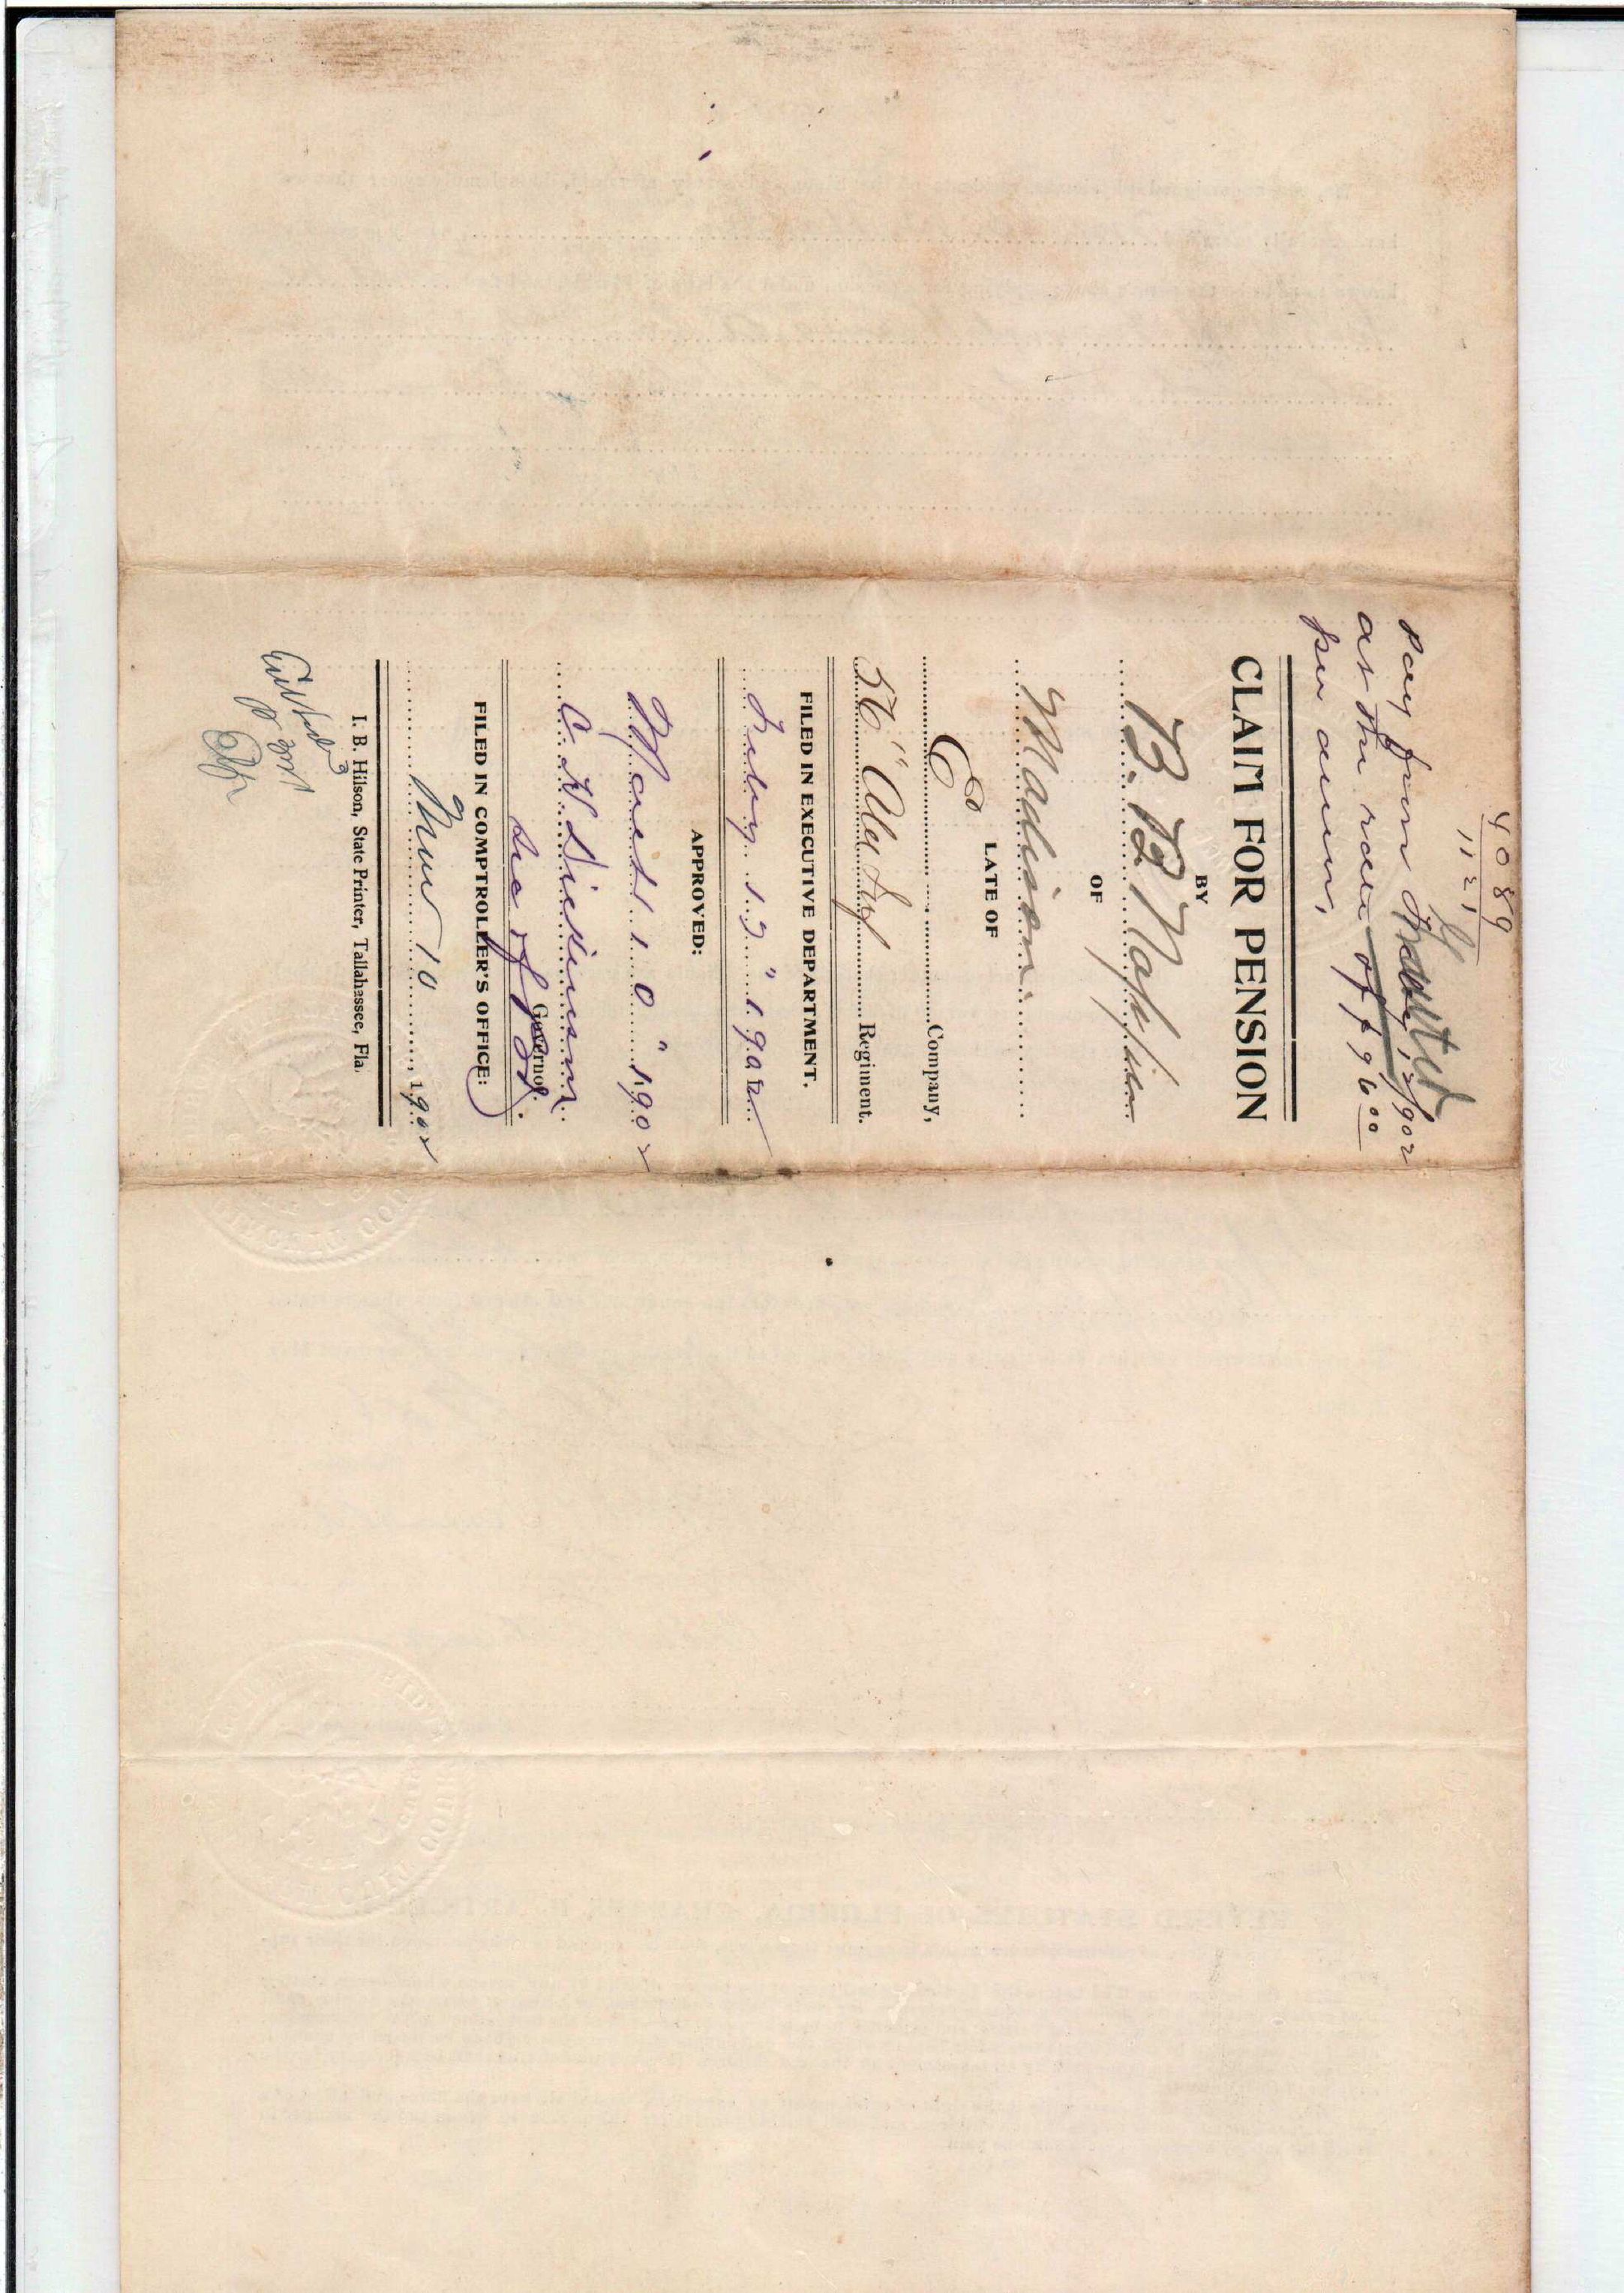 4089
1121
Granted
Pay from Feby 13/902
at the rate of $96 00
per annum,
CLAIM FOR PENSION
BY
B. B.
OF
Madison
LATE OF
Co E Company,
56" Ala Inf Regiment.
FILED IN EXECUTIVE DEPARTMENT.
Feby 13" 1902
APPROVED:
March 10" 1902
C. H. Dickinson
Sec of Bd.
Governor.
FILED IN COMPTROLLER'S OFFICE:
Mar 10 1902
I. B. Hilson, State Printer, Tallahassee, Fla.